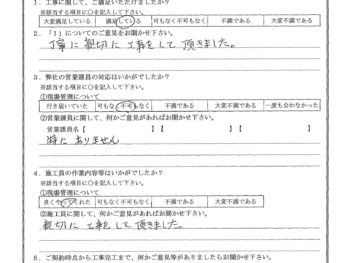 1．工事に関して、ご満足いただけましたか？
※該当する項目に○を記入して下さい。
大変満足している 満足している 可もなく不可もなく 不満である 大変不満である
2．「1」についてのご意見をお聞かせ下さい。
丁寧に親切に工事をして頂きました。
3．弊社の営業課員の対応はいかがでしたか？
※該当する項目に○を記入して下さい。
①現場管理について
行き届いていた 可もなく不可もなく 不満である 大変不満である 一度も会わなかった
②営業課員に関して、何かご意見があればお聞かせ下さい。
営業課員名【 】【 】【 】
特にありません
4．施工員の作業内容等はいかがでしたか？
※該当する項目に○を記入して下さい。
①現場管理について
良くやってくれた 可もなく不可もなく 不満である 大変不満である
②施工員に関して、何かご意見があればお聞かせ下さい。
親切に工事をして頂きました。
5．ご契約時点から工事完了まで、何かご意見等がありましたらお聞かせ下さい。